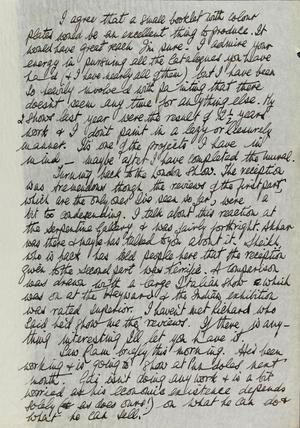 I agree that a small booklet with colour
plates would be an excellent thing to produce. It
would have great reach I'm sure. I admire your
energy in pursuing all the catalogues you have
had & (I have nearly all of them) but I have been
so heavily involved with painting that there
doesn't seem any time for anything else. My
2 shows last year were the result of 2½ years'
work & I don't paint in a lazy or leisurely
manner. It's one of the projects I have in
mind – maybe after I have completed the mural.
Turning back to the London show. The reception
was tremendous though the reviews of the first part,
which are the only ones I've seen so far, were a
bit condescending. I talk about this reaction at
the Serpentine Gallery & was fairly forthright.
was there & maybe has talked to you about it. Sheikh,
who is back has told people here that the reception
given to the second part was terrific. A comparison
was drawn with a large Italian show which
was on at the Hayward & the Indian exhibition
was rated superior. I haven't met Richard who
said he'd show me the reviews. If there is any-
thing interesting I'll let you have it.
Saw Ram briefly this morning. He's been
working & is going to show at Pundole's next
month. isn't doing any work & is a bit
worried as his economic existence depends
solely (as does ours!) on what he can do &
what he can sell.